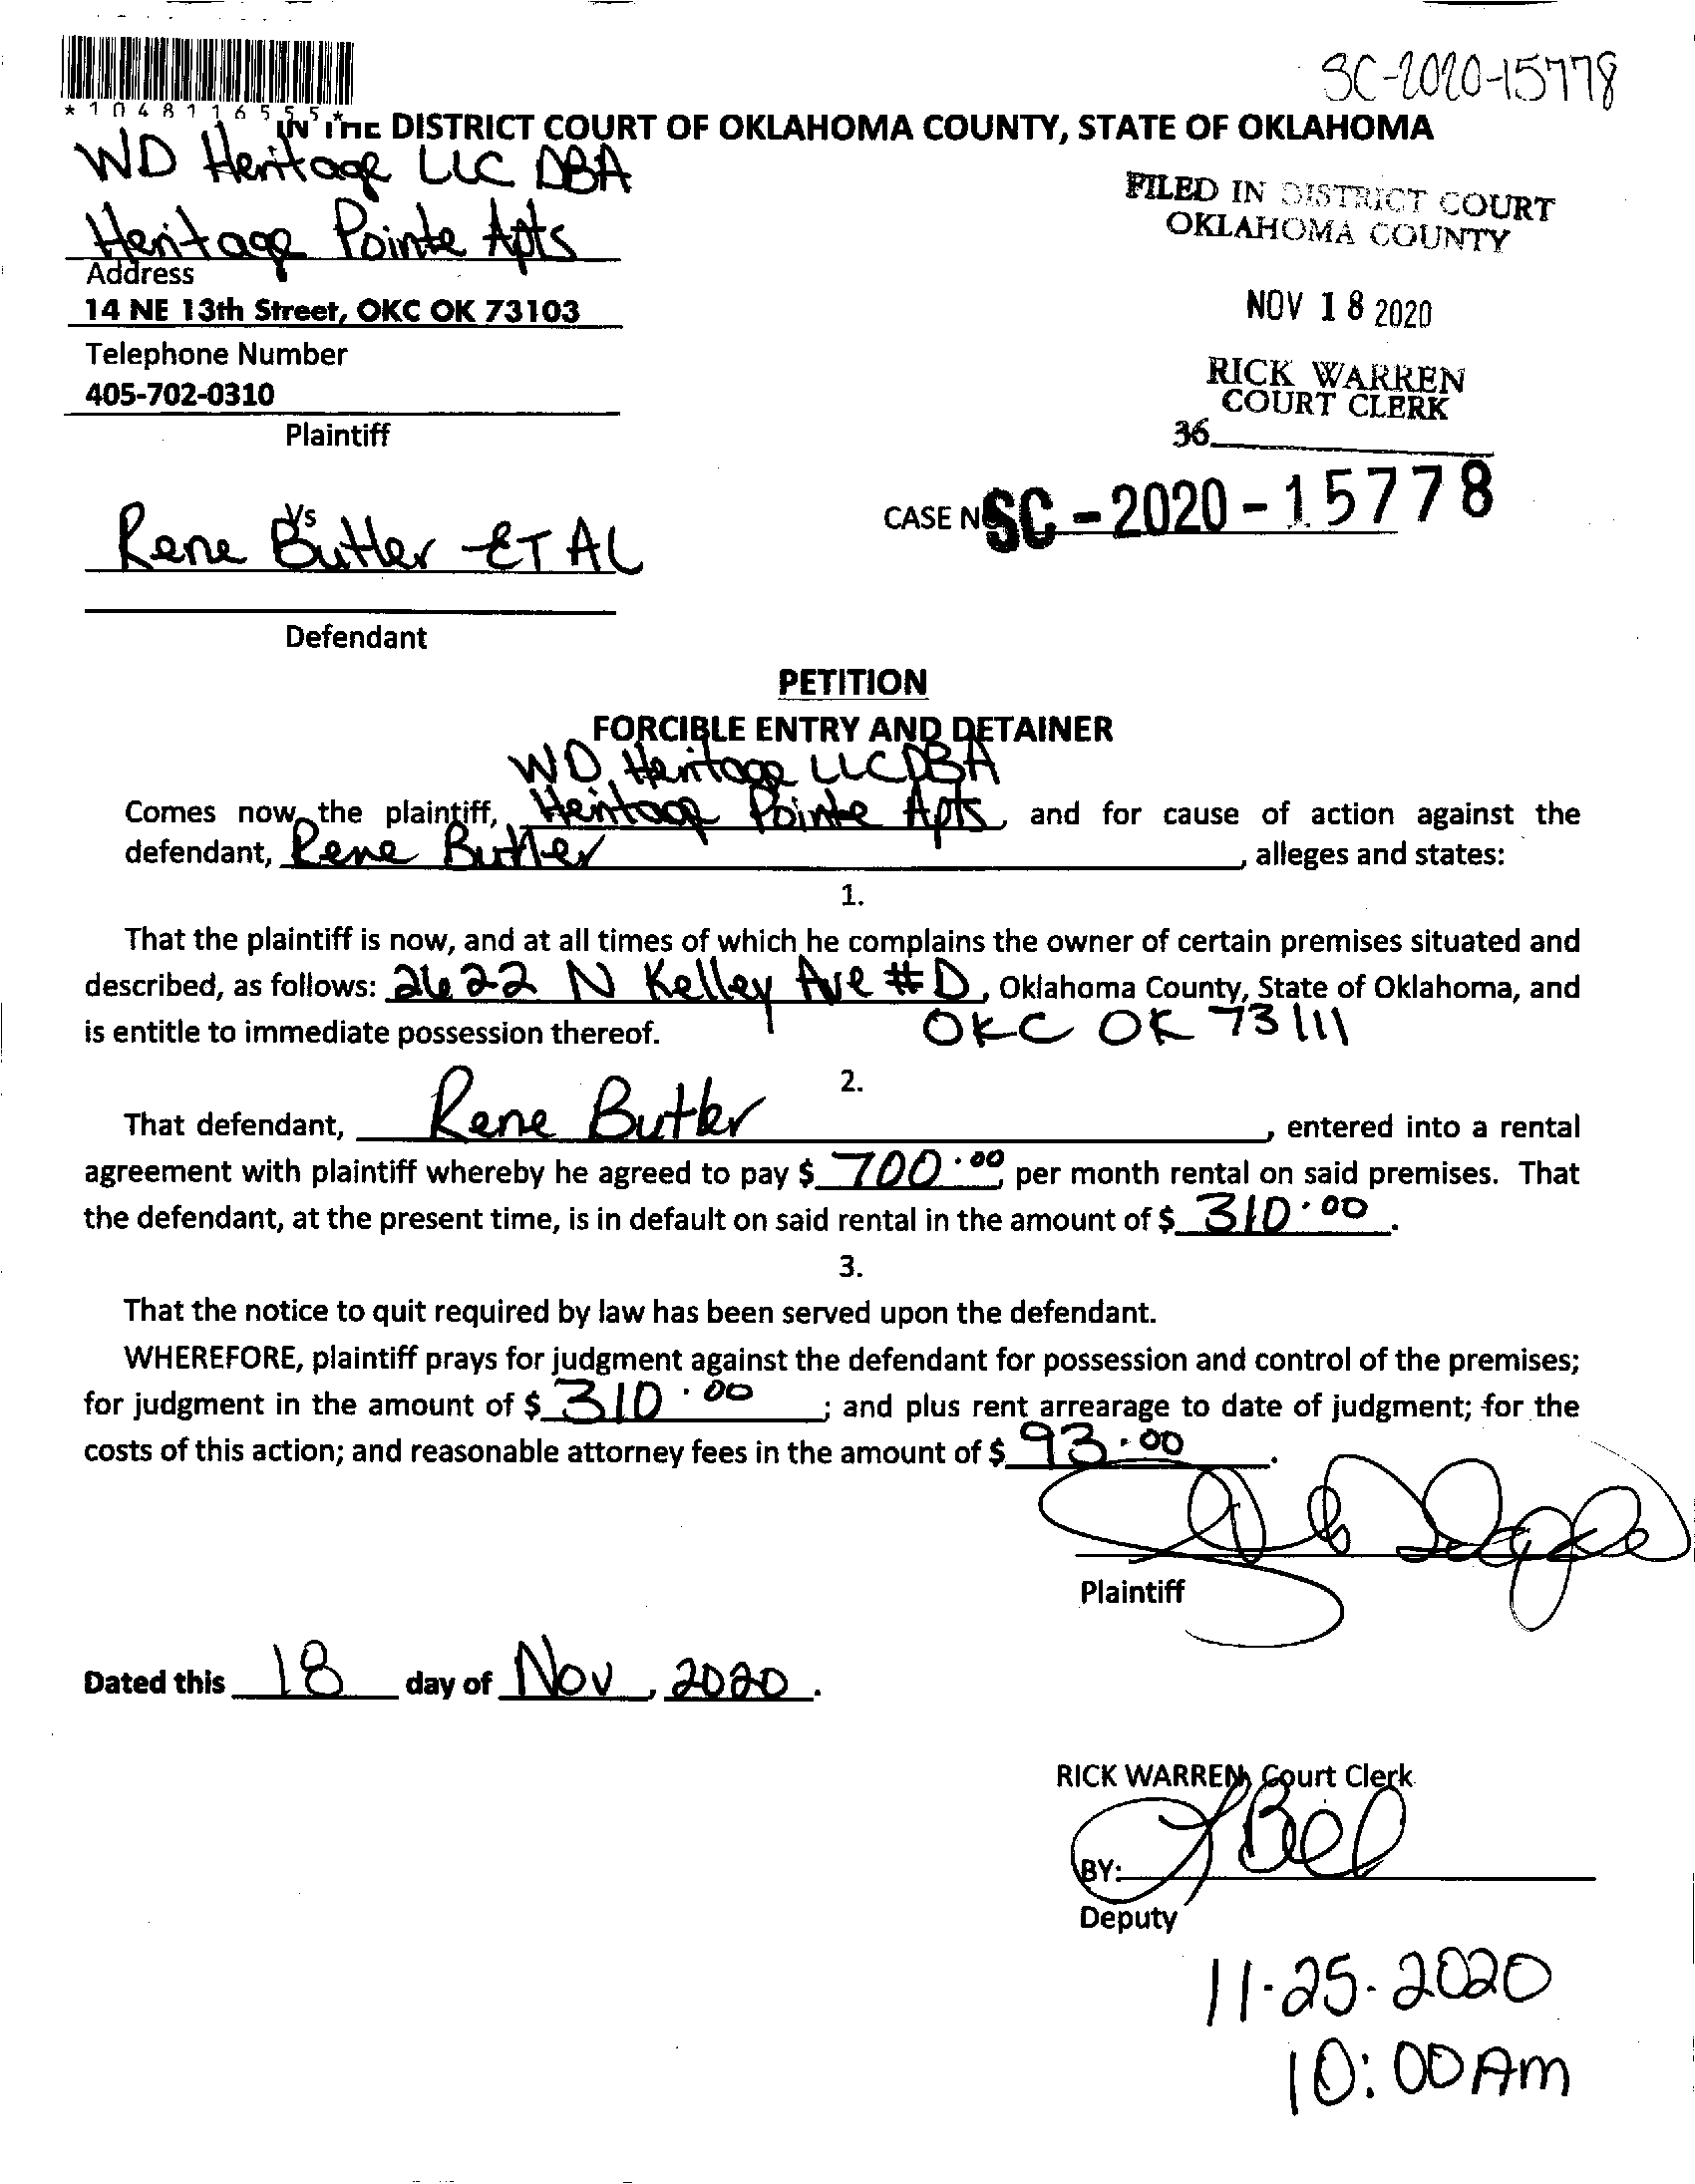 SC-2020-15778
*1048116555*
IN THE DISTRICT COURT OF OKLAHOMA COUNTY, STATE OF OKLAHOMA
WD Heritage LLC DBA
Heritage Pointe Apts
Address
14 NE 13th Street, OKC OK 73103
Telephone Number
405-702-0310
Plaintiff
FILED IN DISTRICT COURT
OKLAHOMA COUNTY
NOV 18 2020
RICK WARREN
COURT CLERK
36
Vs
Rene Butler ET AL
CASE NO SC-2020-15778
Defendant
PETITION
FORCIBLE ENTRY AND DETAINER
WD Heritage LLC DBA
Comes now the plaintiff, Heritage Pointe Apts, and for cause of action against the
defendant, Rene Butler, alleges and states:
1.
That the plaintiff is now, and at all times of which he complains the owner of certain premises situated and
described, as follows: 2622 N Kelley Ave #D, Oklahoma County, State of Oklahoma, and
is entitle to immediate possession thereof. OKC OK 73111
2.
That defendant, Rene Butler, entered into a rental
agreement with plaintiff whereby he agreed to pay $ 700.00 per month rental on said premises. That
the defendant, at the present time, is in default on said rental in the amount of $ 310.00.
3.
That the notice to quit required by law has been served upon the defendant.
WHEREFORE, plaintiff prays for judgment against the defendant for possession and control of the premises;
for judgment in the amount of $ 310.00; and plus rent arrearage to date of judgment; for the
costs of this action; and reasonable attorney fees in the amount of $ 93.00.
Plaintiff
Dated this 18 day of Nov, 2020.
RICK WARREN, Court Clerk
BY:
Deputy
11-25-2020
10:00 Am